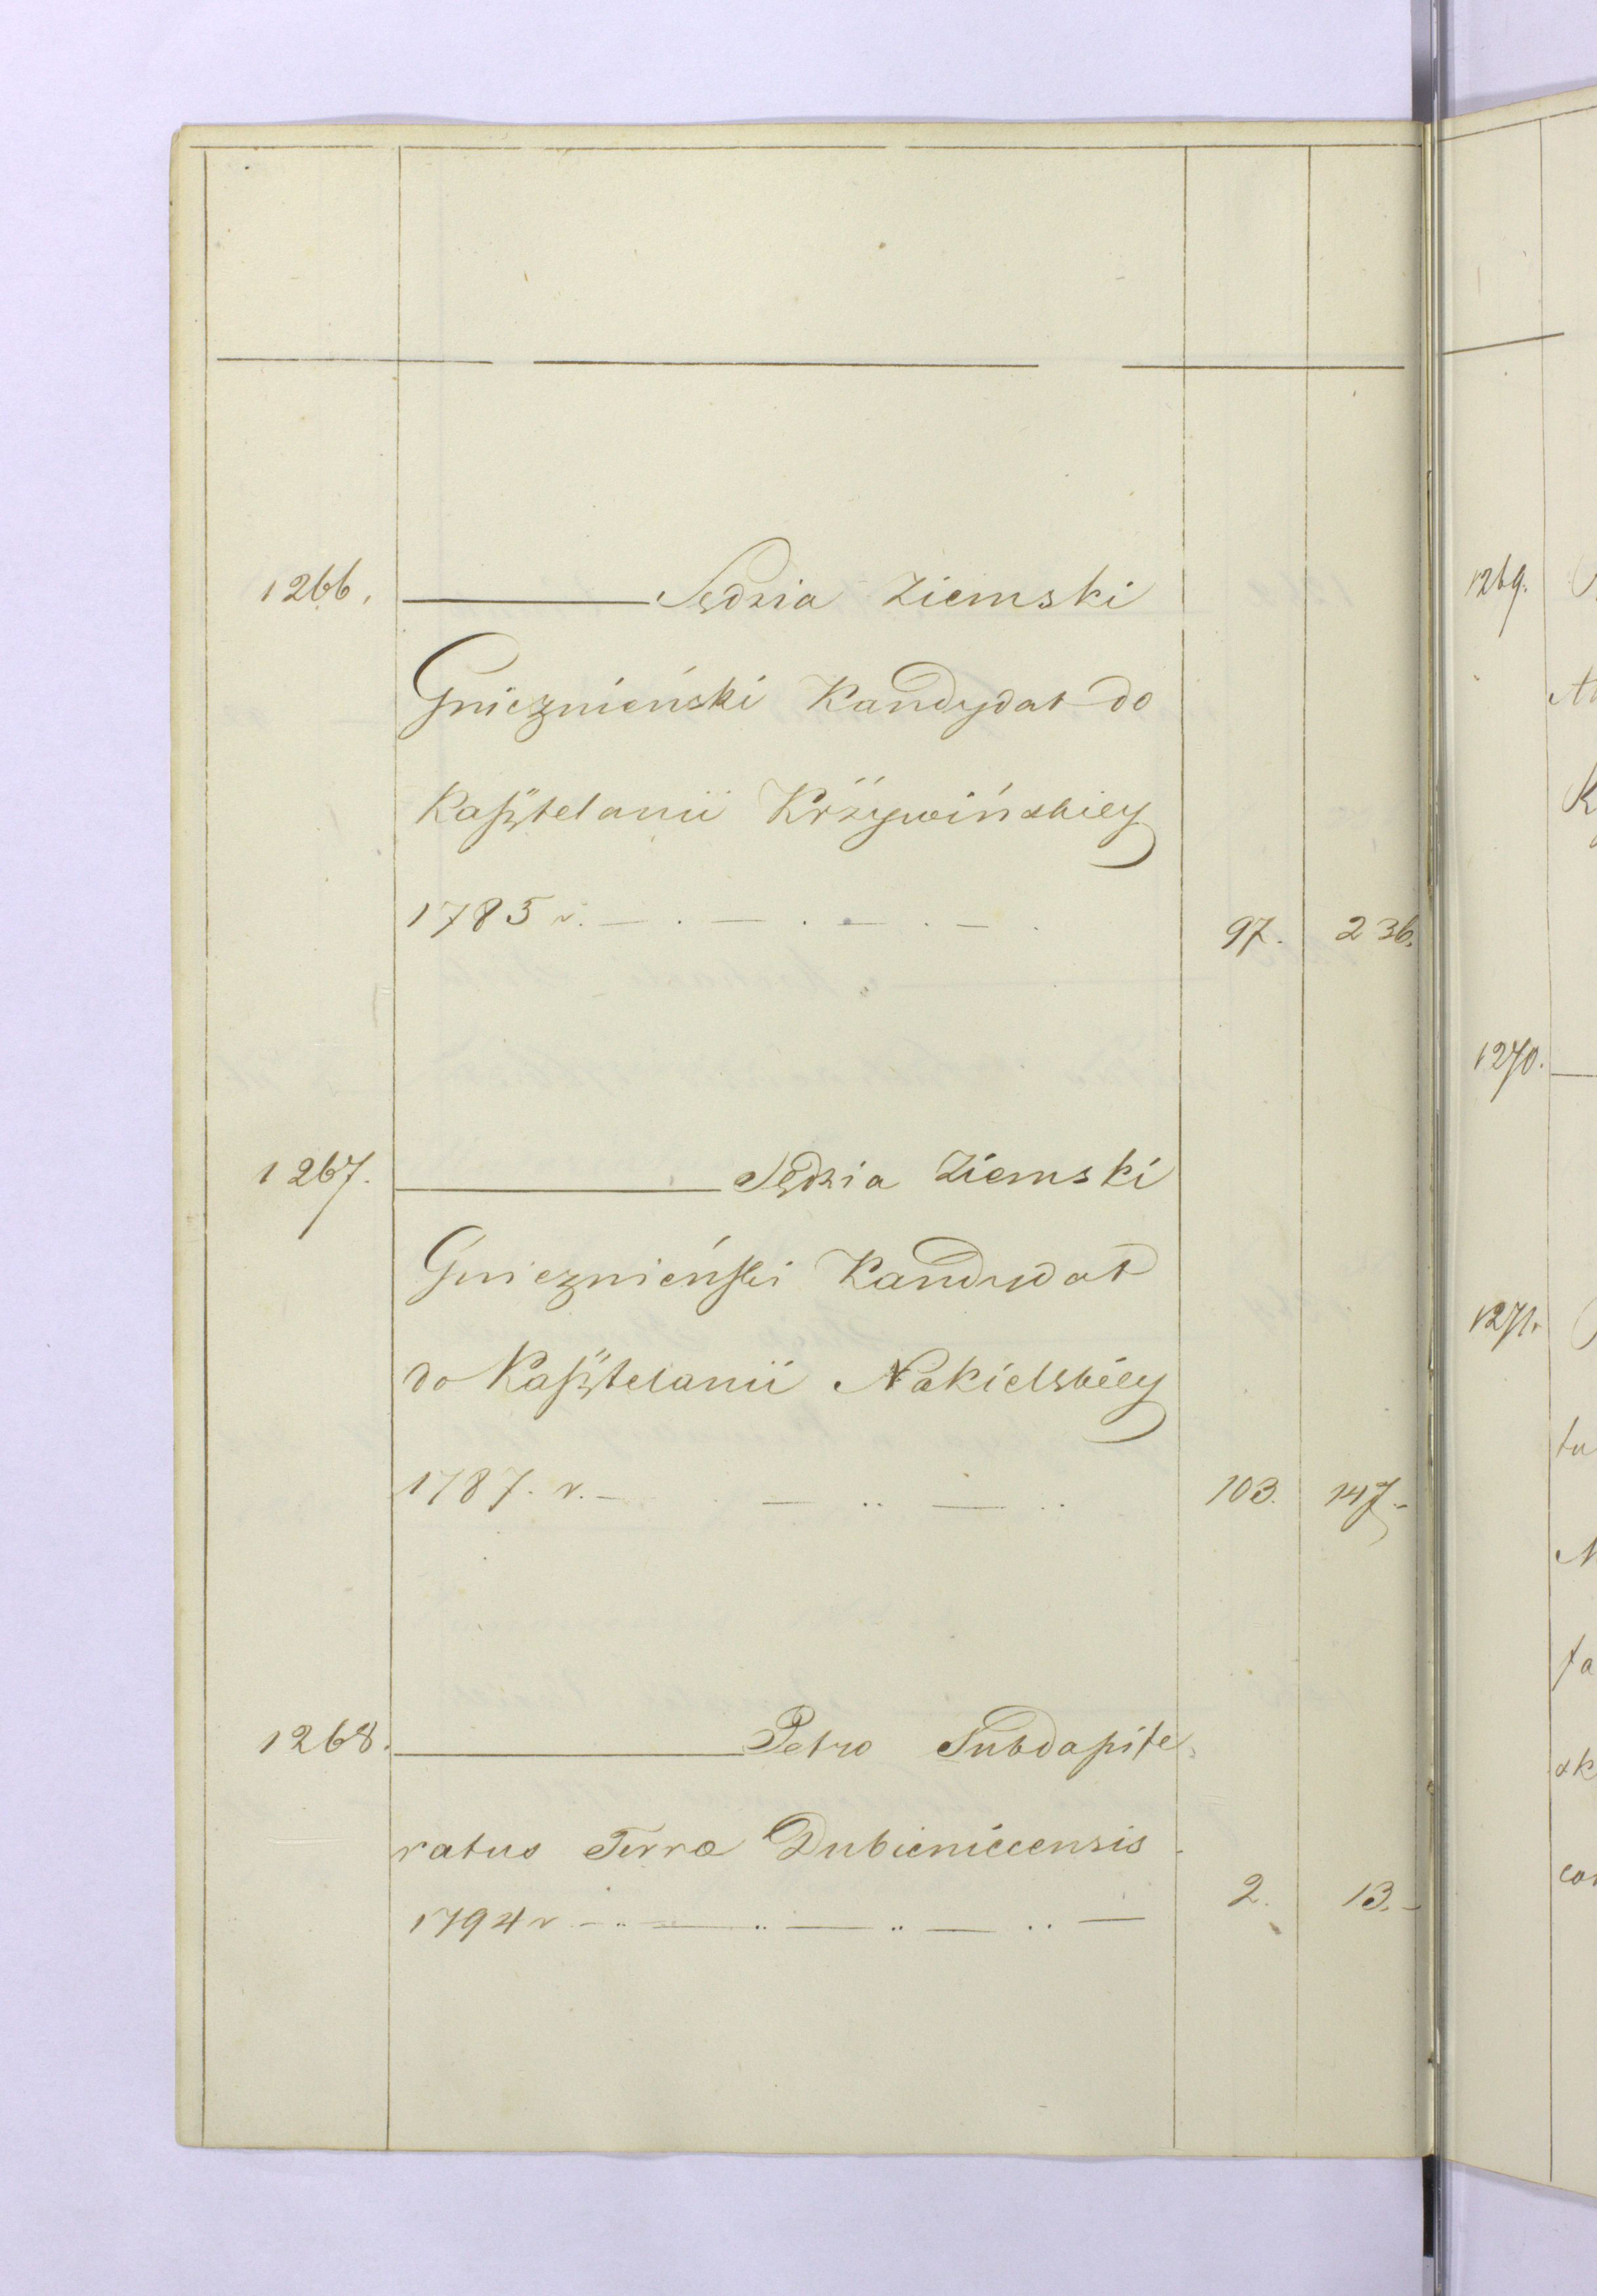 1266. ——— Sędzia Ziemski
Gnieznieński Kandydat do
Kasztelanii Krżywińskiey
1785 r. — . — . — . — . 97. 236.
1267. ——— Sędzia Ziemski
Gnieznieński Kandydat
do Kasztelanii Nakielskiey
1787. r. — . — .. — .. 103. 147.-
1268. ——— Petro Subdapife
ratus Terræ Dubieniecensis
1794 r - .. — .. — .. — .. — 2. 13.-
1269.
1270.
1271.